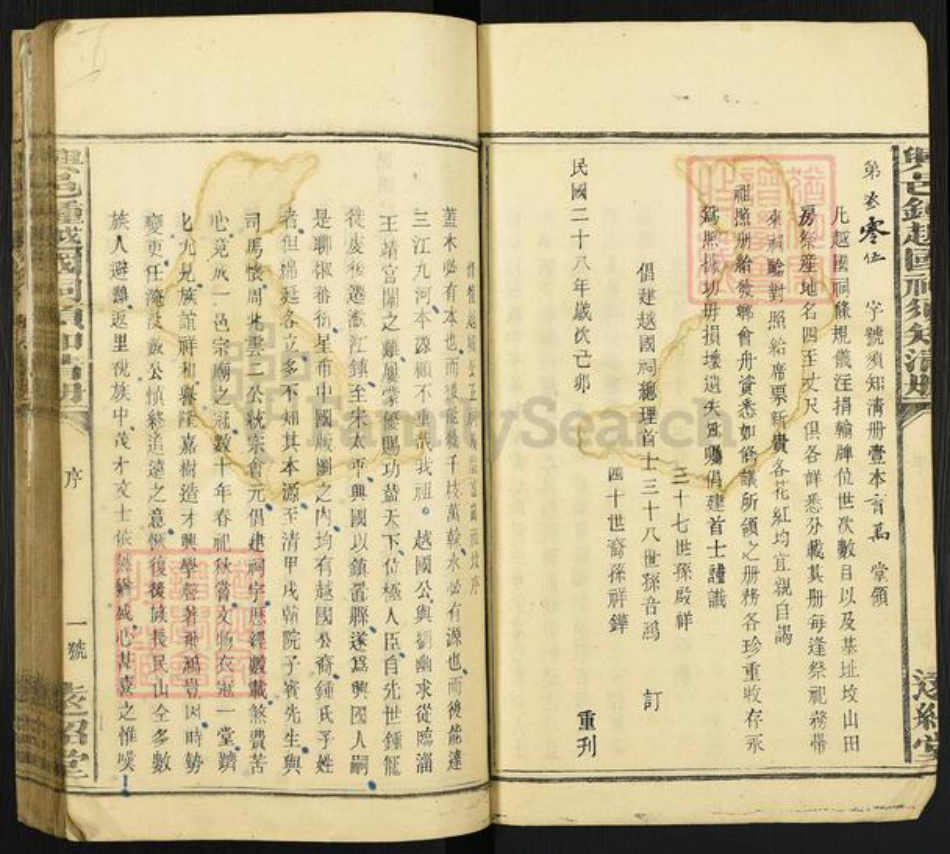 興邑鍾越國祠須知清册
遠紹堂
第叁零伍 字號須知清册壹本育萬 堂領
凡越國祠條規儀注捐輸牌位世次數目以及基址坟山田
房祭產地名四至丈尺俱各詳悉分載其册每逢祭祀務帶
來祠驗對照給席票新貴各花紅均宜親自謁
祖照册給發鄉會舟資悉如舊議所領之册務各珍重收存永
爲照據切毋損壞遺失爲囑倡建首士謹識
三十七世孫啟祥
倡建越國祠總理首士三十八世孫音鴻 訂
四十世裔孫祥鏵
民國二十八年歲次己卯 重刊
蓋木必有本也而後能發千枝萬幹水必有源也而後能達
三江九河本源顧不重哉我祖。越國公與劉幽求從臨淄
王靖宮闈之難屢蒙優賜功蓋天下位極人臣自先世鍾
徙虔後遷瀲江鎮至宋太平興國以鎮置縣遂爲興國人嗣
是聊椒蕃衍星布中國版圖之內均有越國公裔鍾氏子姓
者但綿延各立多不知其本源至清甲戌翰院子賓先生與
司馬懷周兆雲二公統宗會元倡建祠宇歷經數載煞費苦
心竟成一邑宗廟之冠數十年春祀秋嘗文物衣冠一堂躋
匕九兄族誼祥和譽隆嘉樹造才興學聲著飛鴻豈因時勢
變更任淹沒啟公慎終追遠之意
族人避難返里覩族中茂才文士依然繼盛心甚喜之惟
興邑鍾越國祠須知清册
序
一號
遠紹堂
FamilySearch